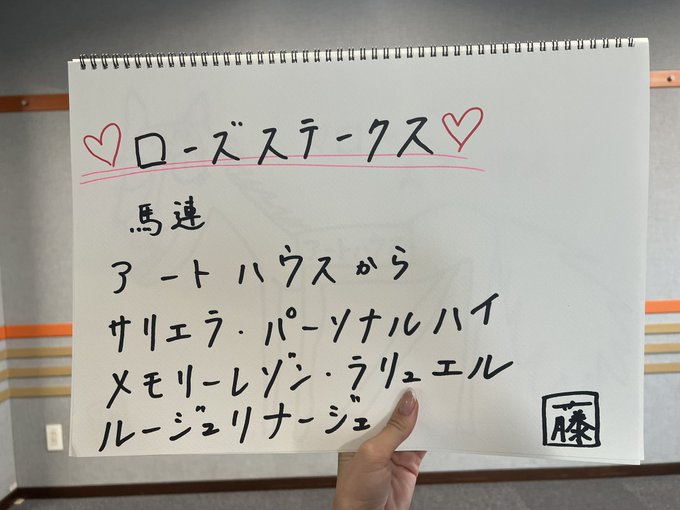 ローズステークス
馬連
アートハウスから
サリエラ・パーソナルハイ
メモリーレゾン・ラリュエル
ルージュリナージュ
藤